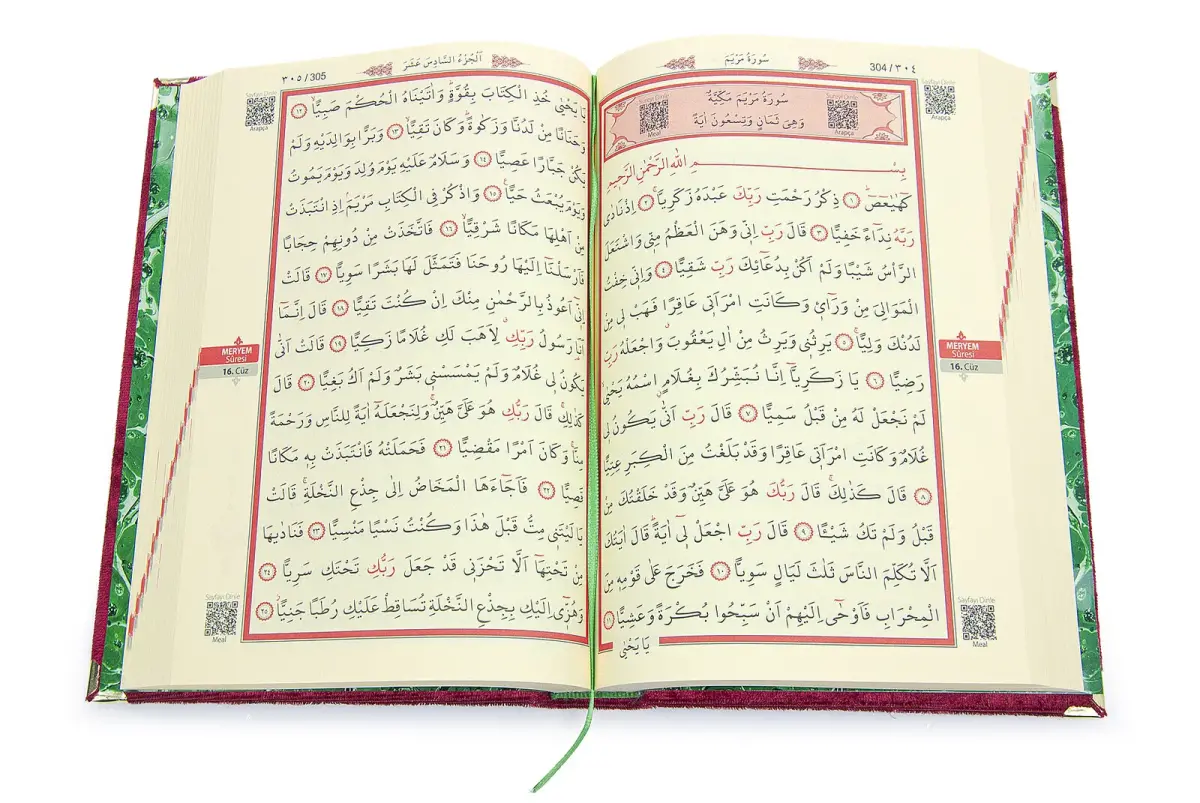 304 / ٣٠٤
سُورَةُ مَرْيَمَ
Sayfayı Dinle
Arapça
Sureyi Dinle
Meal
سُورَةُ مَرْيَمَ مَكِّيَّةٌ
وَهِيَ ثَمَانٍ وَتِسْعُونَ اٰيَةً
Sureyi Dinle
Arapça
بِسْمِ اللّٰهِ الرَّحْمٰنِ الرَّحِيمِ
كٓهٰيٰعٓصٓ ۚ ﴿١﴾ ذِكْرُ رَحْمَتِ رَبِّكَ عَبْدَهُ زَكَرِيَّاۚ ﴿٢﴾ اِذْ نَادٰى
رَبَّهُ نِدَٓاءً خَفِيًّا ﴿٣﴾ قَالَ رَبِّ اِنّٖى وَهَنَ الْعَظْمُ مِنّٖى وَاشْتَعَلَ
الرَّأْسُ شَيْبًا وَلَمْ اَكُنْ بِدُعَٓائِكَ رَبِّ شَقِيًّا ﴿٤﴾ وَاِنّٖى خِفْتُ
الْمَوَالِىَ مِنْ وَرَٓاءٖى وَكَانَتِ امْرَاَتٖى عَاقِرًا فَهَبْ لٖى مِنْ
لَدُنْكَ وَلِيًّاۙ ﴿٥﴾ يَرِثُنٖى وَيَرِثُ مِنْ اٰلِ يَعْقُوبَ وَاجْعَلْهُ رَبِّ
رَضِيًّا ﴿٦﴾ يَا زَكَرِيَّٓا اِنَّا نُبَشِّرُكَ بِغُلَامٍ اسْمُهُ يَحْيٰى
لَمْ نَجْعَلْ لَهُ مِنْ قَبْلُ سَمِيًّا ﴿٧﴾ قَالَ رَبِّ اَنّٰى يَكُونُ لٖى
غُلَامٌ وَكَانَتِ امْرَاَتٖى عَاقِرًا وَقَدْ بَلَغْتُ مِنَ الْكِبَرِ عِتِيًّا
﴿٨﴾ قَالَ كَذٰلِكَۚ قَالَ رَبُّكَ هُوَ عَلَىَّ هَيِّنٌ وَقَدْ خَلَقْتُكَ مِنْ
قَبْلُ وَلَمْ تَكُ شَيْـًٔا ﴿٩﴾ قَالَ رَبِّ اجْعَلْ لٖٓى اٰيَةًۜ قَالَ اٰيَتُكَ
اَلَّا تُكَلِّمَ النَّاسَ ثَلٰثَ لَيَالٍ سَوِيًّا ﴿١٠﴾ فَخَرَجَ عَلٰى قَوْمِهٖ مِنَ
الْمِحْرَابِ فَاَوْحٰٓى اِلَيْهِمْ اَنْ سَبِّحُوا بُكْرَةً وَعَشِيًّا ﴿١١﴾
يَا يَحْيٰى
MERYEM
Sûresi
16. Cüz
Sayfayı Dinle
Meal
اَلْجُزْءُ السَّادِسَ عَشَرَ
٣٠٥ / 305
Sayfayı Dinle
Arapça
يَا يَحْيٰى خُذِ الْكِتَابَ بِقُوَّةٍۜ وَاٰتَيْنَاهُ الْحُكْمَ صَبِيًّاۙ ﴿١٢﴾
وَحَنَانًا مِنْ لَدُنَّا وَزَكٰوةًۜ وَكَانَ تَقِيًّاۙ ﴿١٣﴾ وَبَرًّا بِوَالِدَيْهِ وَلَمْ
يَكُنْ جَبَّارًا عَصِيًّا ﴿١٤﴾ وَسَلَامٌ عَلَيْهِ يَوْمَ وُلِدَ وَيَوْمَ يَمُوتُ
وَيَوْمَ يُبْعَثُ حَيًّا۟ ﴿١٥﴾ وَاذْكُرْ فِى الْكِتَابِ مَرْيَمَۢ اِذِ انْتَبَذَتْ
مِنْ اَهْلِهَا مَكَانًا شَرْقِيًّاۙ ﴿١٦﴾ فَاتَّخَذَتْ مِنْ دُونِهِمْ حِجَابًا
فَاَرْسَلْنَٓا اِلَيْهَا رُوحَنَا فَتَمَثَّلَ لَهَا بَشَرًا سَوِيًّا ﴿١٧﴾ قَالَتْ
اِنّٖٓى اَعُوذُ بِالرَّحْمٰنِ مِنْكَ اِنْ كُنْتَ تَقِيًّا ﴿١٨﴾ قَالَ اِنَّمَٓا
اَنَا۬ رَسُولُ رَبِّكِۗ لِاَهَبَ لَكِ غُلَامًا زَكِيًّا ﴿١٩﴾ قَالَتْ اَنّٰى
يَكُونُ لٖى غُلَامٌ وَلَمْ يَمْسَسْنٖى بَشَرٌ وَلَمْ اَكُ بَغِيًّا ﴿٢٠﴾ قَالَ
كَذٰلِكِۚ قَالَ رَبُّكِ هُوَ عَلَىَّ هَيِّنٌۚ وَلِنَجْعَلَهُٓ اٰيَةً لِلنَّاسِ وَرَحْمَةً
مِنَّاۚ وَكَانَ اَمْرًا مَقْضِيًّا ﴿٢١﴾ فَحَمَلَتْهُ فَانْتَبَذَتْ بِهٖ مَكَانًا
قَصِيًّا ﴿٢٢﴾ فَاَجَٓاءَهَا الْمَخَاضُ اِلٰى جِذْعِ النَّخْلَةِۚ قَالَتْ
يَا لَيْتَنٖى مِتُّ قَبْلَ هٰذَا وَكُنْتُ نَسْيًا مَنْسِيًّا ﴿٢٣﴾ فَنَادٰيهَا
مِنْ تَحْتِهَٓا اَلَّا تَحْزَنٖى قَدْ جَعَلَ رَبُّكِ تَحْتَكِ سَرِيًّا ﴿٢٤﴾
وَهُزّٖٓى اِلَيْكِ بِجِذْعِ النَّخْلَةِ تُسَاقِطْ عَلَيْكِ رُطَبًا جَنِيًّاۘ ﴿٢٥﴾
MERYEM
Sûresi
16. Cüz
Sayfayı Dinle
Meal